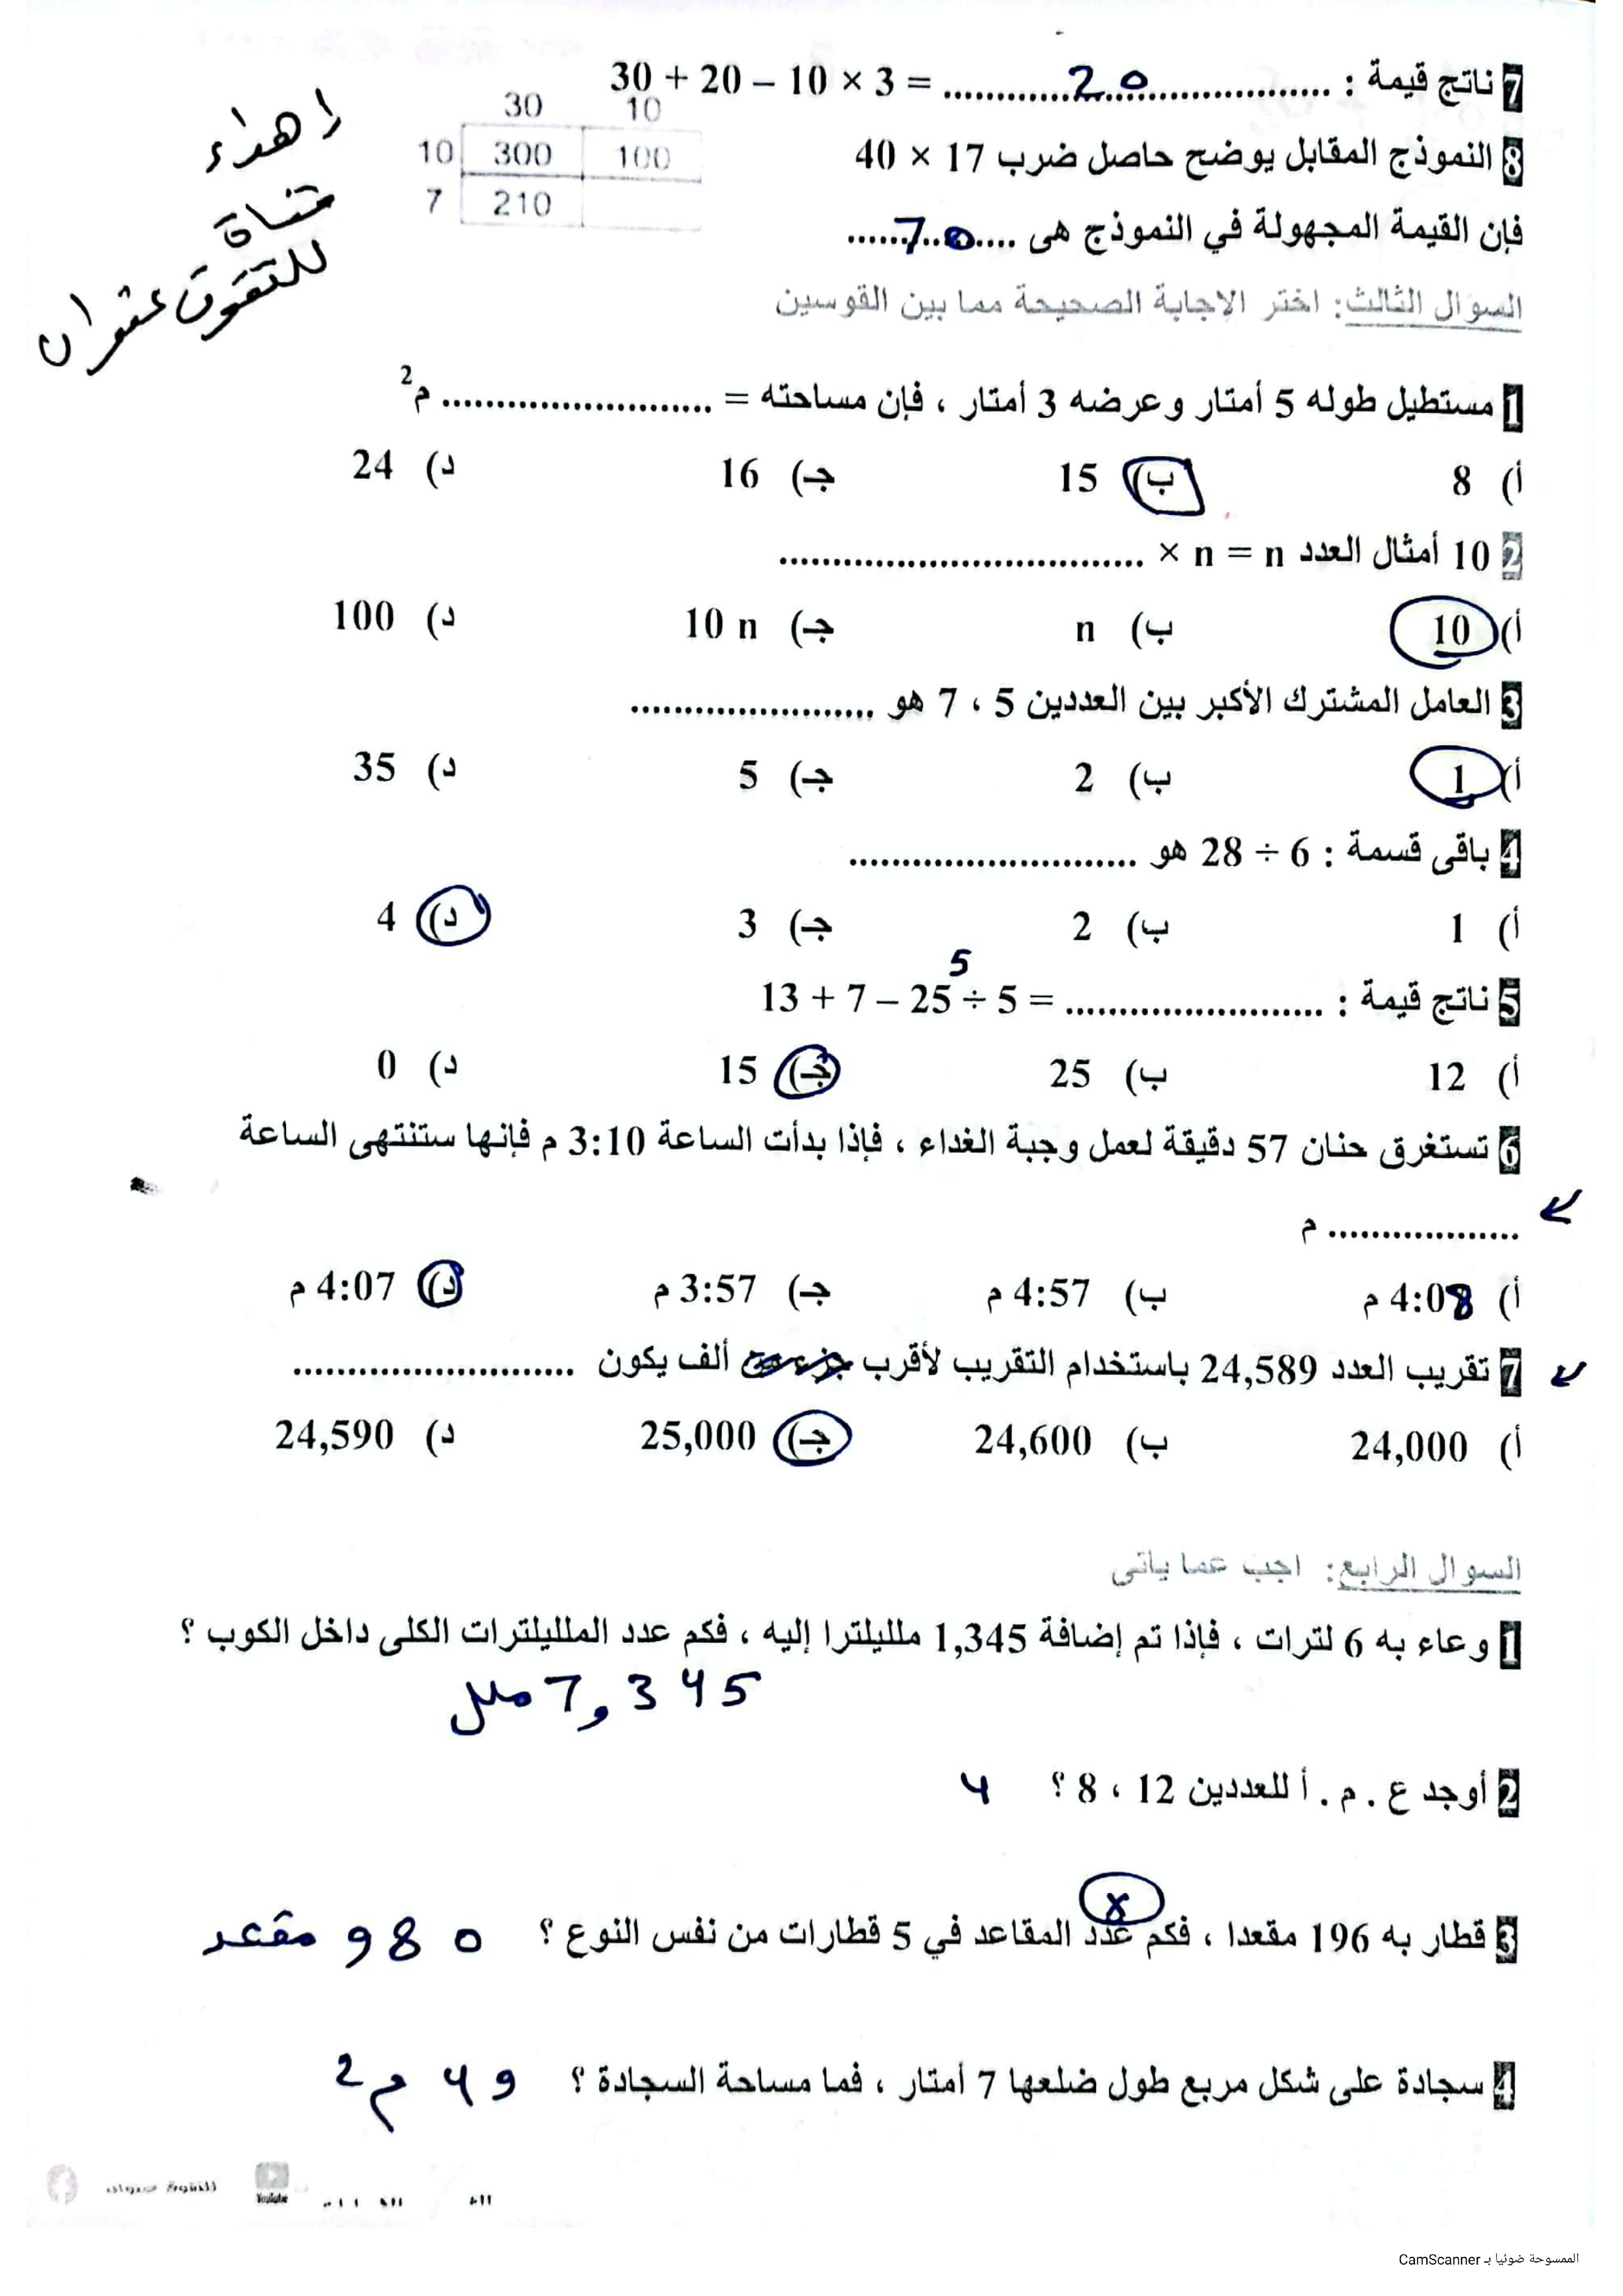 7 ناتج قيمة : 30 + 20 – 10 × 3 = ........20........
30 10
10 300 100
7 210
8 النموذج المقابل يوضح حاصل ضرب 17 × 40
فإن القيمة المجهولة في النموذج هى ....70....
اهداء
قناة
للتفوق عنوان
السؤال الثالث: اختر الاجابة الصحيحة مما بين القوسين
1 مستطيل طوله 5 أمتار وعرضه 3 أمتار ، فإن مساحته = ........................ م2
أ) 8 ب) 15 جـ) 16 د) 24
2 10 أمثال العدد n = n × ........................
أ) 10 ب) n جـ) 10 n د) 100
3 العامل المشترك الأكبر بين العددين 5 ، 7 هو ........................
أ) 1 ب) 2 جـ) 5 د) 35
4 باقى قسمة : 28 ÷ 6 هو ........................
أ) 1 ب) 2 جـ) 3 د) 4
5
5 ناتج قيمة : 13 + 7 – 25 ÷ 5 = ........................
أ) 12 ب) 25 جـ) 15 د) 0
6 تستغرق حنان 57 دقيقة لعمل وجبة الغداء ، فإذا بدأت الساعة 3:10 م فإنها ستنتهى الساعة
.................. م
أ) 4:08 م ب) 4:57 م جـ) 3:57 م د) 4:07 م
7 تقريب العدد 24,589 باستخدام التقريب لأقرب ألف يكون ........................
أ) 24,000 ب) 24,600 جـ) 25,000 د) 24,590
السؤال الرابع: اجب عما ياتى
1 وعاء به 6 لترات ، فإذا تم إضافة 1,345 ملليلترا إليه ، فكم عدد الملليلترات الكلى داخل الكوب ؟
7,345 ملل
2 أوجد ع . م . أ للعددين 12 ، 8 ؟ 4
x
3 قطار به 196 مقعدا ، فكم عدد المقاعد في 5 قطارات من نفس النوع ؟ 980 مقعد
4 سجادة على شكل مربع طول ضلعها 7 أمتار ، فما مساحة السجادة ؟ 49 م2
للتفوق عنوان YouTube
الممسوحة ضوئيا بـ CamScanner